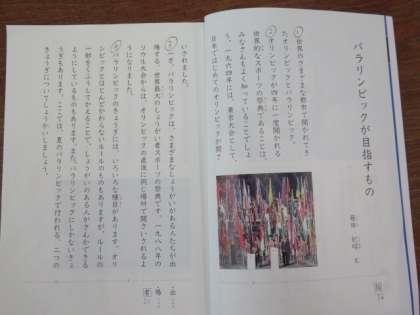 パラリンピックが目指すもの
世界のさまざまな都市で開かれてき
たオリンピックとパラリンピック。
オリンピックが四年に一度開かれる
世界的なスポーツの祭典であることは、
みなさんもよく知っていることでしょ
う。一九六四年には、東京大会として、
日本ではじめてのオリンピックが開さ
いされました。
一方、パラリンピックは、さまざまなしょうがいがある人たちが出
場する、世界最大のしょうがい者スポーツの祭典です。一九八八年の
ソウル大会からは、オリンピックの直後に同じ場所で開さいされるよ
うになりました。
パラリンピックのきょうぎには、いろいろな種目があります。オリ
ンピックとほとんどかわらないルールのものもありますが、ルールの
一部をくふうしてかえることで、しょうがいのある人がさんかできる
ようにしているものもあります。また、パラリンピックにしかないきょ
うぎもあります。ここでは、夏のパラリンピックで行われる、二つの
きょうぎについてしょうかいしましょう。